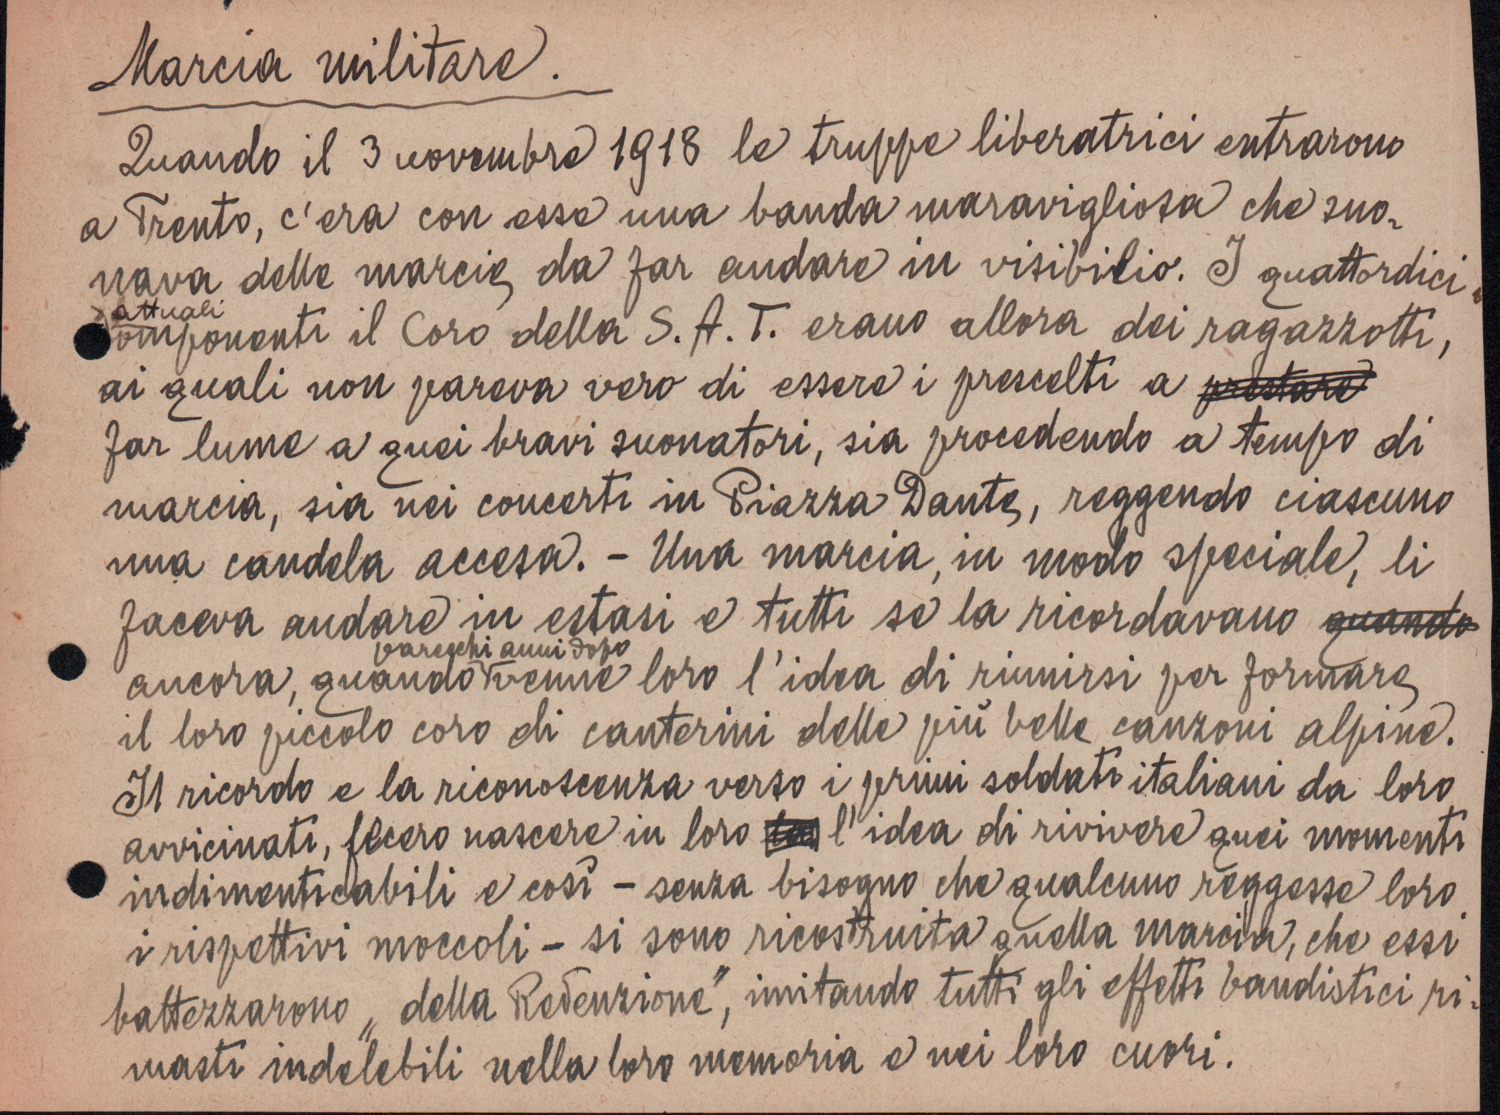 Marcia militare.
Quando il 3 novembre 1918 le truppe liberatrici entrarono
a Trento, c'era con esse una banda maravigliosa che suo-
nava delle marcie da far andare in visibilio. I quattordici
attuali
componenti il Coro della S. A. T. erano allora dei ragazzotti,
ai quali non pareva vero di essere i prescelti a prestare
far lume a quei bravi suonatori, sia procedendo a tempo di
marcia, sia nei concerti in Piazza Dante, reggendo ciascuno
una candela accesa. - Una marcia, in modo speciale, li
faceva andare in estasi e tutti se la ricordavano quando
parecchi anni dopo
ancora, quando venne loro l'idea di riunirsi per formare
il loro piccolo coro di canterini delle più belle canzoni alpine.
Il ricordo e la riconoscenza verso i primi soldati italiani da loro
avvicinati, fecero nascere in loro l'idea di rivivere quei momenti
indimenticabili e così - senza bisogno che qualcuno reggesse loro
i rispettivi moccoli - si sono ricostruita quella marcia, che essi
battezzarono „della Redenzione", imitando tutti gli effetti bandistici ri-
masti indelebili nella loro memoria e nei loro cuori.